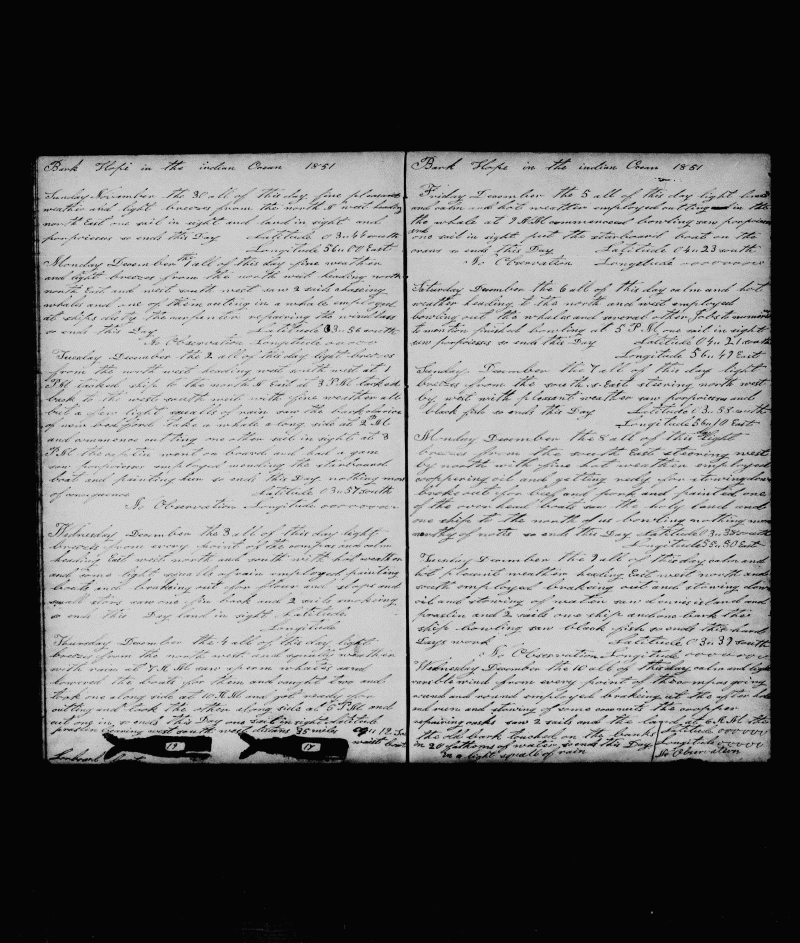 Bark Hope in the indian Ocean 1851
Sunday November the 30 all of this day fine pleasant
weather and light breezes from the north & west heading
north East one sail in sight and land in sight and
porpoises so ends this Day Latitude 03..44 south
Longitude 56..00 East
Monday Desember 1 all of this day fine weather
and light breezes from the north west heading north
north East and west south west saw 2 sails chaseing
whales and one of them cuting in a whale employed
at ships duty the carpenter repairing the windlass
so ends this Day Latitude 03..56 south
No Observation Longitude 00000
Tuesday Desember the 2 all of this day light breezes
from the north west heading west south west at 1
PM tacked ship to the north & East at 3 PM tacked
back to the west south west with fine weather all
but a few light squalls of rain saw the bark
of new bedford take a whale along side at 2 PM
and commence cutting one other sail in sight at 3
PM the captin went on board and had a gam
saw porpoises employed mending the starboard
boat and painting her so ends this Day nothing more
Latitude 03..57 south
No Observation Longitude 0000000
Wednesday Desember the 3 all of this day light
breezes from every point of the compas and calm
heading East west north and south with hot weather
and some light squalls of rain employed painting
boats and breaking out for flour and slops and
small stors saw one fin back and 2 sails
so ends this Day land in sight Latitude
Longitude
Thursday Desember the 4 all of this day light
breezes from the north west and weather
with rain at 7 AM saw sperm whales and
lowered the boats for them and caught two and
took one along side at 10 AM and got ready for
cutting and took the other along side at 5 PM and
cut one in so ends this Day one sail in sight Latitude
praslin bearing west south west distans 35 miles 04..12 South
17
17
waist boat
Larboard boat
Bark Hope in the indian Ocean 1851
Friday Desember the 5 all of this day light breezes
and calm and hot weather employed cutting in the
the whale at 9 AM commenced bowling saw porpoises
and
one sail in sight put the starboard boat on the
cranes so ends this Day Latitude 04..23 south
No Observation Longitude 0000000
Saturday Desember the 6 all of this day calm and hot
weather heading to the north and west employed
bowling out the whales and several other jobs to
to mention finished bowling at 5 PM one sail in sight
saw porpoises so ends this Day Latitude 04..21 south
Longitude 56..47 East
Sunday Desember the 7 all of this day light
breezes from the south & East steering north west
by west with pleasent weather saw porpoises and
black fish so ends this Day Latitude 03..55 south
Longitude 56..10 East
Monday Desember the 8 all of this Day light
breezes from the south East steering west
by north with fine hot weather employed
coopering oil and getting redy for stowingdown
broke out for beef and pork and painted one
of the over head boats saw the holy land and
one ship to the north of us bowling nothing more
worthy of note so ends this Day Latitude 03..38 south
Longitude 55..50 East
Tuesday Desember the 9 all of this day calm and
hot plesent weather heading East west north and
south employed breaking oil and stowing down
oil and stowing of water saw dennis island and
praslin and 2 sails one ship and one bark the
ship bowling saw black fish so ends this hard
Days work Latitude 03..37 south
No Observation Longitude 0000000
Wednesday Desember the 10 all of the day calm and light
wind from every point of the compas going
round and round employed breaking at the after hold
and oven and stowing of some casks the coopper
repairing casks saw 2 sails and the land at 6 AM
the old bark touched on the banks Latitude 000000
in 20 fathoms of water so ends this Day Longitude 00000
in a light squall of rain No Observation